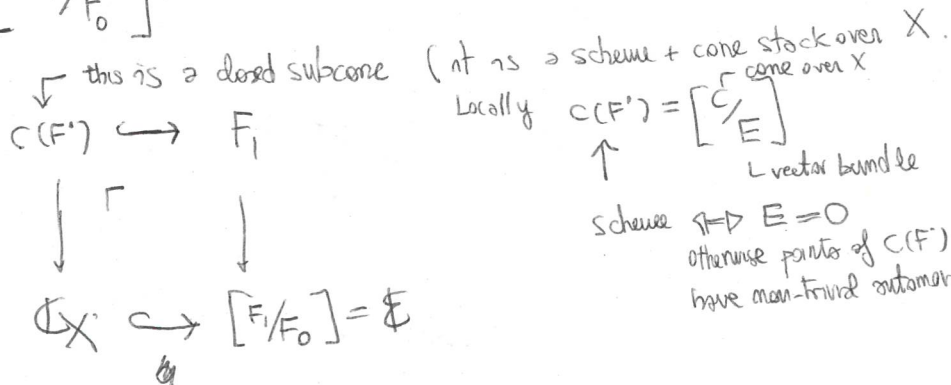 F₀ ]
this is a closed subcone (it is a scheme + cone stack over X.
cone over X
Locally C(F•) = [C/E]
vector bundle
C(F•) ↪ F₁
scheme ⇔ E=0
otherwise points of C(F•)
have non-trivial automor
ℭX ↪ [F₁/F₀] = 𝔈